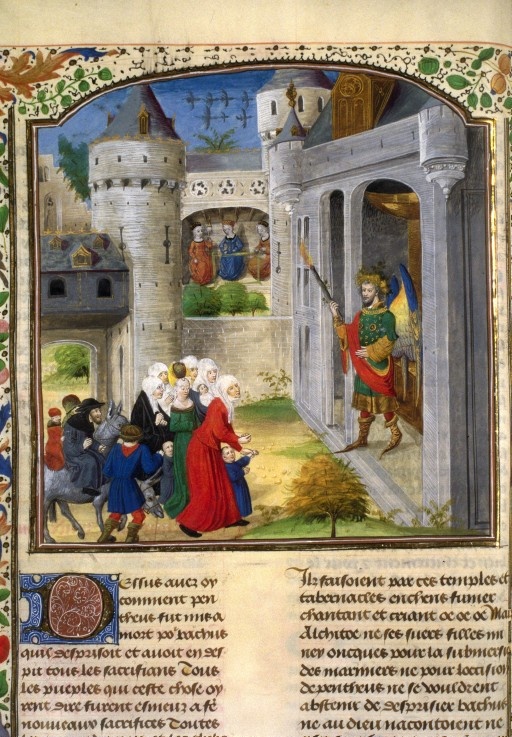 Dessus auez oy
comment pen
theus fut mis a
mort po' bachus
quil desprisoit et auoit en des
pit tous les sacrifians Tous
les pueples qui ceste chose oy
rent dire furent esmeuz a fe
nouueaux sacrifices Toutes
Ilz faisoient par ces temples et
tabernacles encens fumer
chantant et criant oe oe oe Mais
Alchitoe ne ses suers filles mi
ney oncques pour la submersio
des marinniers ne pour loccision
de pentheus ne se voulurent
abstenir de desprisier bachus
ne au dieu nacontoient ne